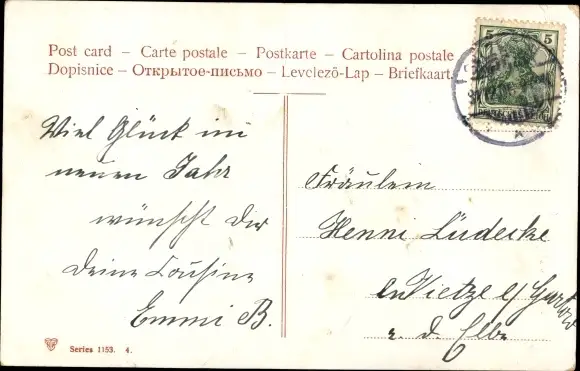 Post card – Carte postale – Postkarte – Cartolina postale
Dopisnice – Открытое-письмо – Levelező-Lap – Briefkaart
5 5
Viel Glück im
neuen Jahr
wünscht Dir
Deine Cousine
Emmi B.
Fräulein
Henni Lüdecke
Vietze b/
a. d. Elbe
Series 1153. 4.